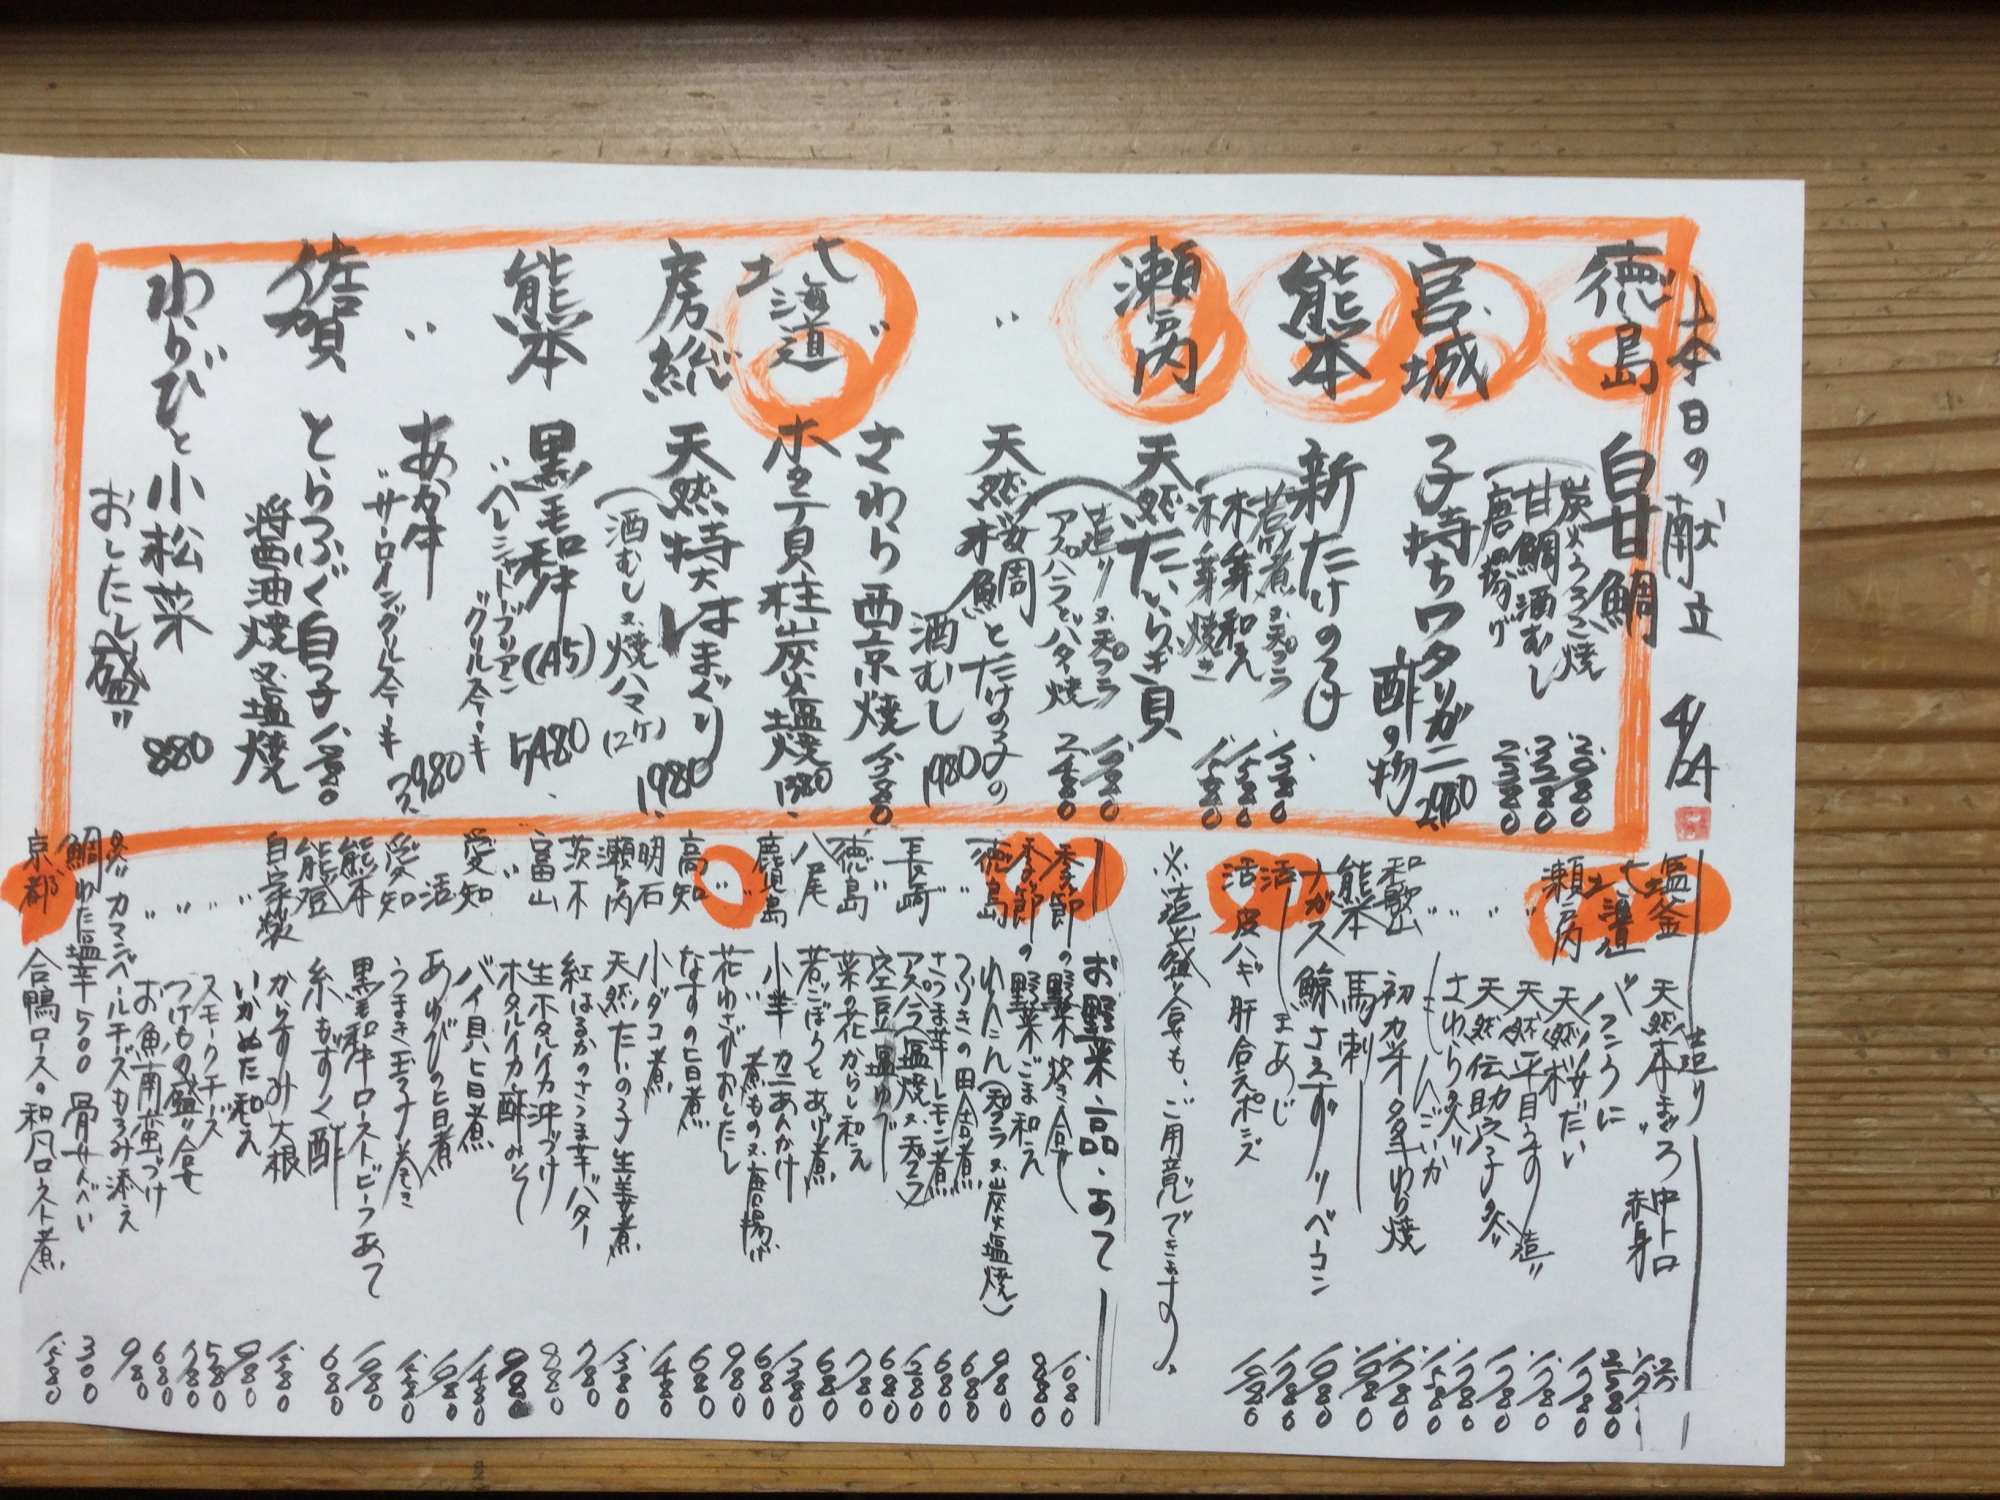 本日の献立 4/24
徳島 白甘鯛
炭火うろこ焼
甘鯛酒むし
唐揚げ
宮城 子持ちワタリガニ
酢の物 2,980
熊本 新たけのこ
若煮又天プラ 1,380
木ノ芽和え 1,580
木ノ芽焼き
瀬戸内 天然たいらぎ貝
造り又天プラ
アスパラとバター焼 2,480
〃 天然桜鯛とたけのこの
酒むし 1,980
〃 さわら西京焼
北海道 ホタテ貝柱炭火塩焼 1,380
房総 天然特大はまぐり
(酒むし又焼ハマ(2ケ) 1,980
熊本 黒毛和牛(A5) 5,480
〃 シャトーブリアン
〃 あか牛
サーロイン 2,980
佐賀 とらふぐ白子
醤油焼又塩焼
わらびと小松菜
おしたし盛〃 880
造り
塩釜 天然本まぐろ 中トロ
赤身
北海道 バフンうに
瀬戸内 天然桜だい 1,780
〃 天然平目うす造〃 1,780
〃 天然伝助穴子 1,780
〃 さわら 1,780
〃 しんこいか 1,580
和歌山 初カツオ わら焼 1,780
熊本 馬刺 1,980
ナガス鯨さえずり/ベーコン 1,980
活〆あじ 1,780
活 皮ハギ 肝合えポンズ 1,980
※造り盛〃合せも、ご用意できます。
お野菜・一品・あて
季節の野菜炊き合せ 1,080
季節の野菜ごま和え 880
徳島 れんこん(天プラ又炭火塩焼) 980
〃 つぶきの田舎煮 680
さつま芋レモン煮 680
長崎 アスパラ(塩焼又天プラ) 1,280
〃 空豆塩ゆで 680
徳島 菜の花からし和え 780
八尾 若ごぼうとあげ煮 680
鹿児島 小芋カニあんかけ 1,380
〃 煮もの又唐揚げ 680
〃 花わさびおしたし 980
高知 なすの旨煮 680
明石 小ダコ煮 1,480
瀬戸内 天然たいの子生姜煮 1,380
茨木 紅はるかのさつま芋バター 780
富山 生ホタルイカ沖づけ 880
〃 ホタルイカ酢みそ 980
愛知 バイ貝旨煮 1,480
活 あわびの旨煮
愛知 うまき玉子巻き 1,580
熊本 黒毛和牛ローストビーフあて 1,980
能登 糸もずく酢 680
自家製 からすみ大根 1,580
〃 いかぬた和え 980
〃 スモークチーズ 580
〃 つけもの盛〃合せ 780
〃 お魚南蛮づけ 680
カマンベールチーズもろみ添え 980
鯛わた塩辛 500 骨せんべい 300
京都 合鴨ロースの和風ロースト煮 1,580